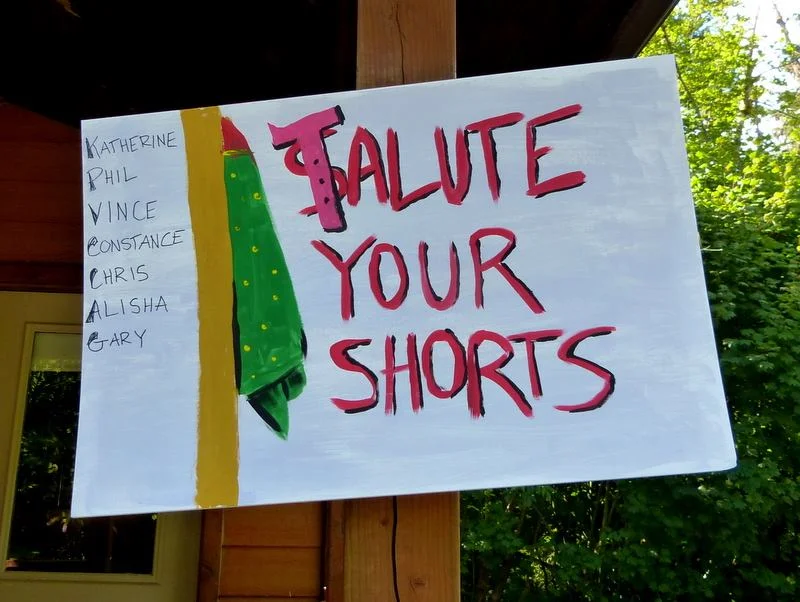 KATHERINE
PHIL
VINCE
CONSTANCE
CHRIS
ALISHA
GARY
TALUTE
YOUR
SHORTS